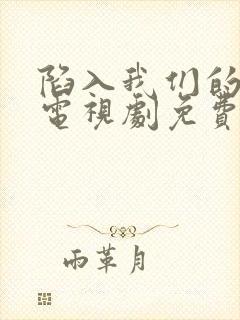 陷入我们的
電視劇免費
雨革月